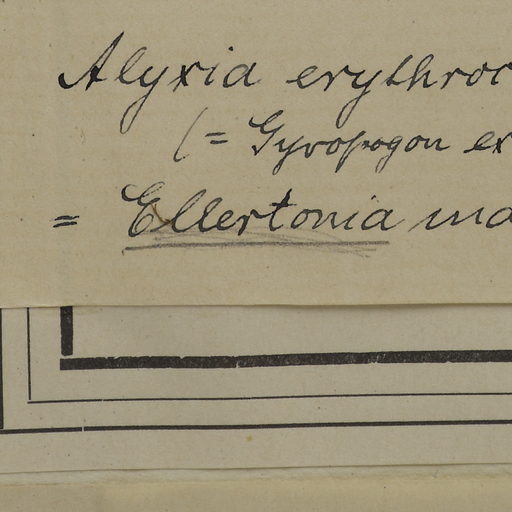 Alyxia erythroc
(= Gyropogon ex
= Ellertonia ma